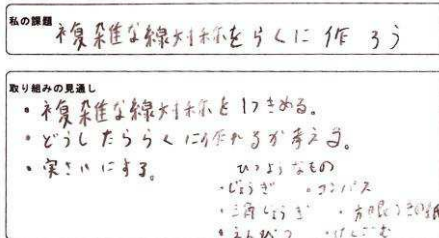 私の課題
複雑な線対称をらくに作ろう
取り組みの見通し
・複雑な線対称を1つきめる。
・どうしたららくに作れるか考える。
・実さいにする。
ひつようなもの
・じょうぎ ・コンパス
・三角じょうぎ ・方眼うきの紙
・えんぴつ ・けしごむ